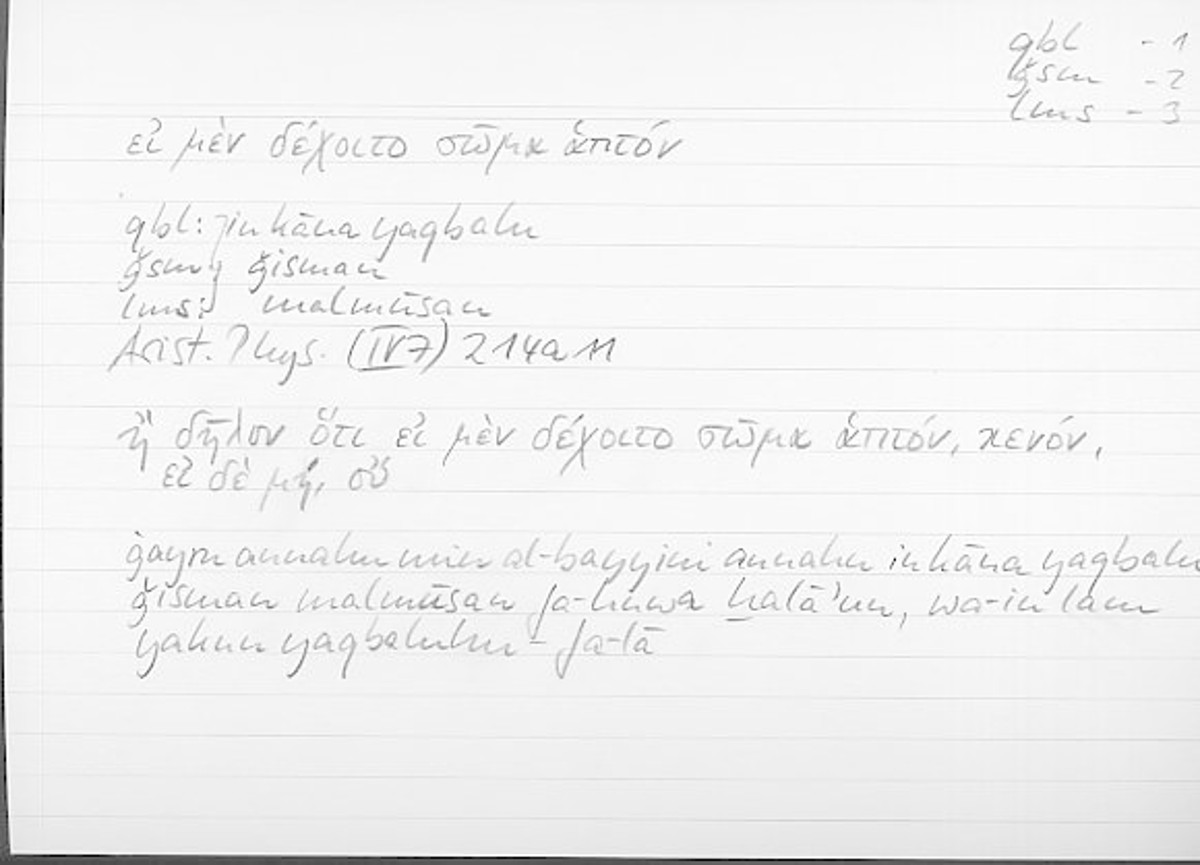 qbl - 1
ǧsm - 2
lms - 3
εἰ μὲν δέχοιτο σῶμα ἁπτόν
qbl: in kāna yaqbalu
ǧsm: ǧisman
lms: malmūsan
Arist. Phys. (IV7) 214a11
ἢ δῆλον ὅτι εἰ μὲν δέχοιτο σῶμα ἁπτόν, κενόν,
εἰ δὲ μή, οὔ
ġayra annahu min al-bayyini annahu in kāna yaqbalu
ǧisman malmūsan fa-huwa ḫalā'un, wa-in lam
yakun yaqbaluhu - fa-lā